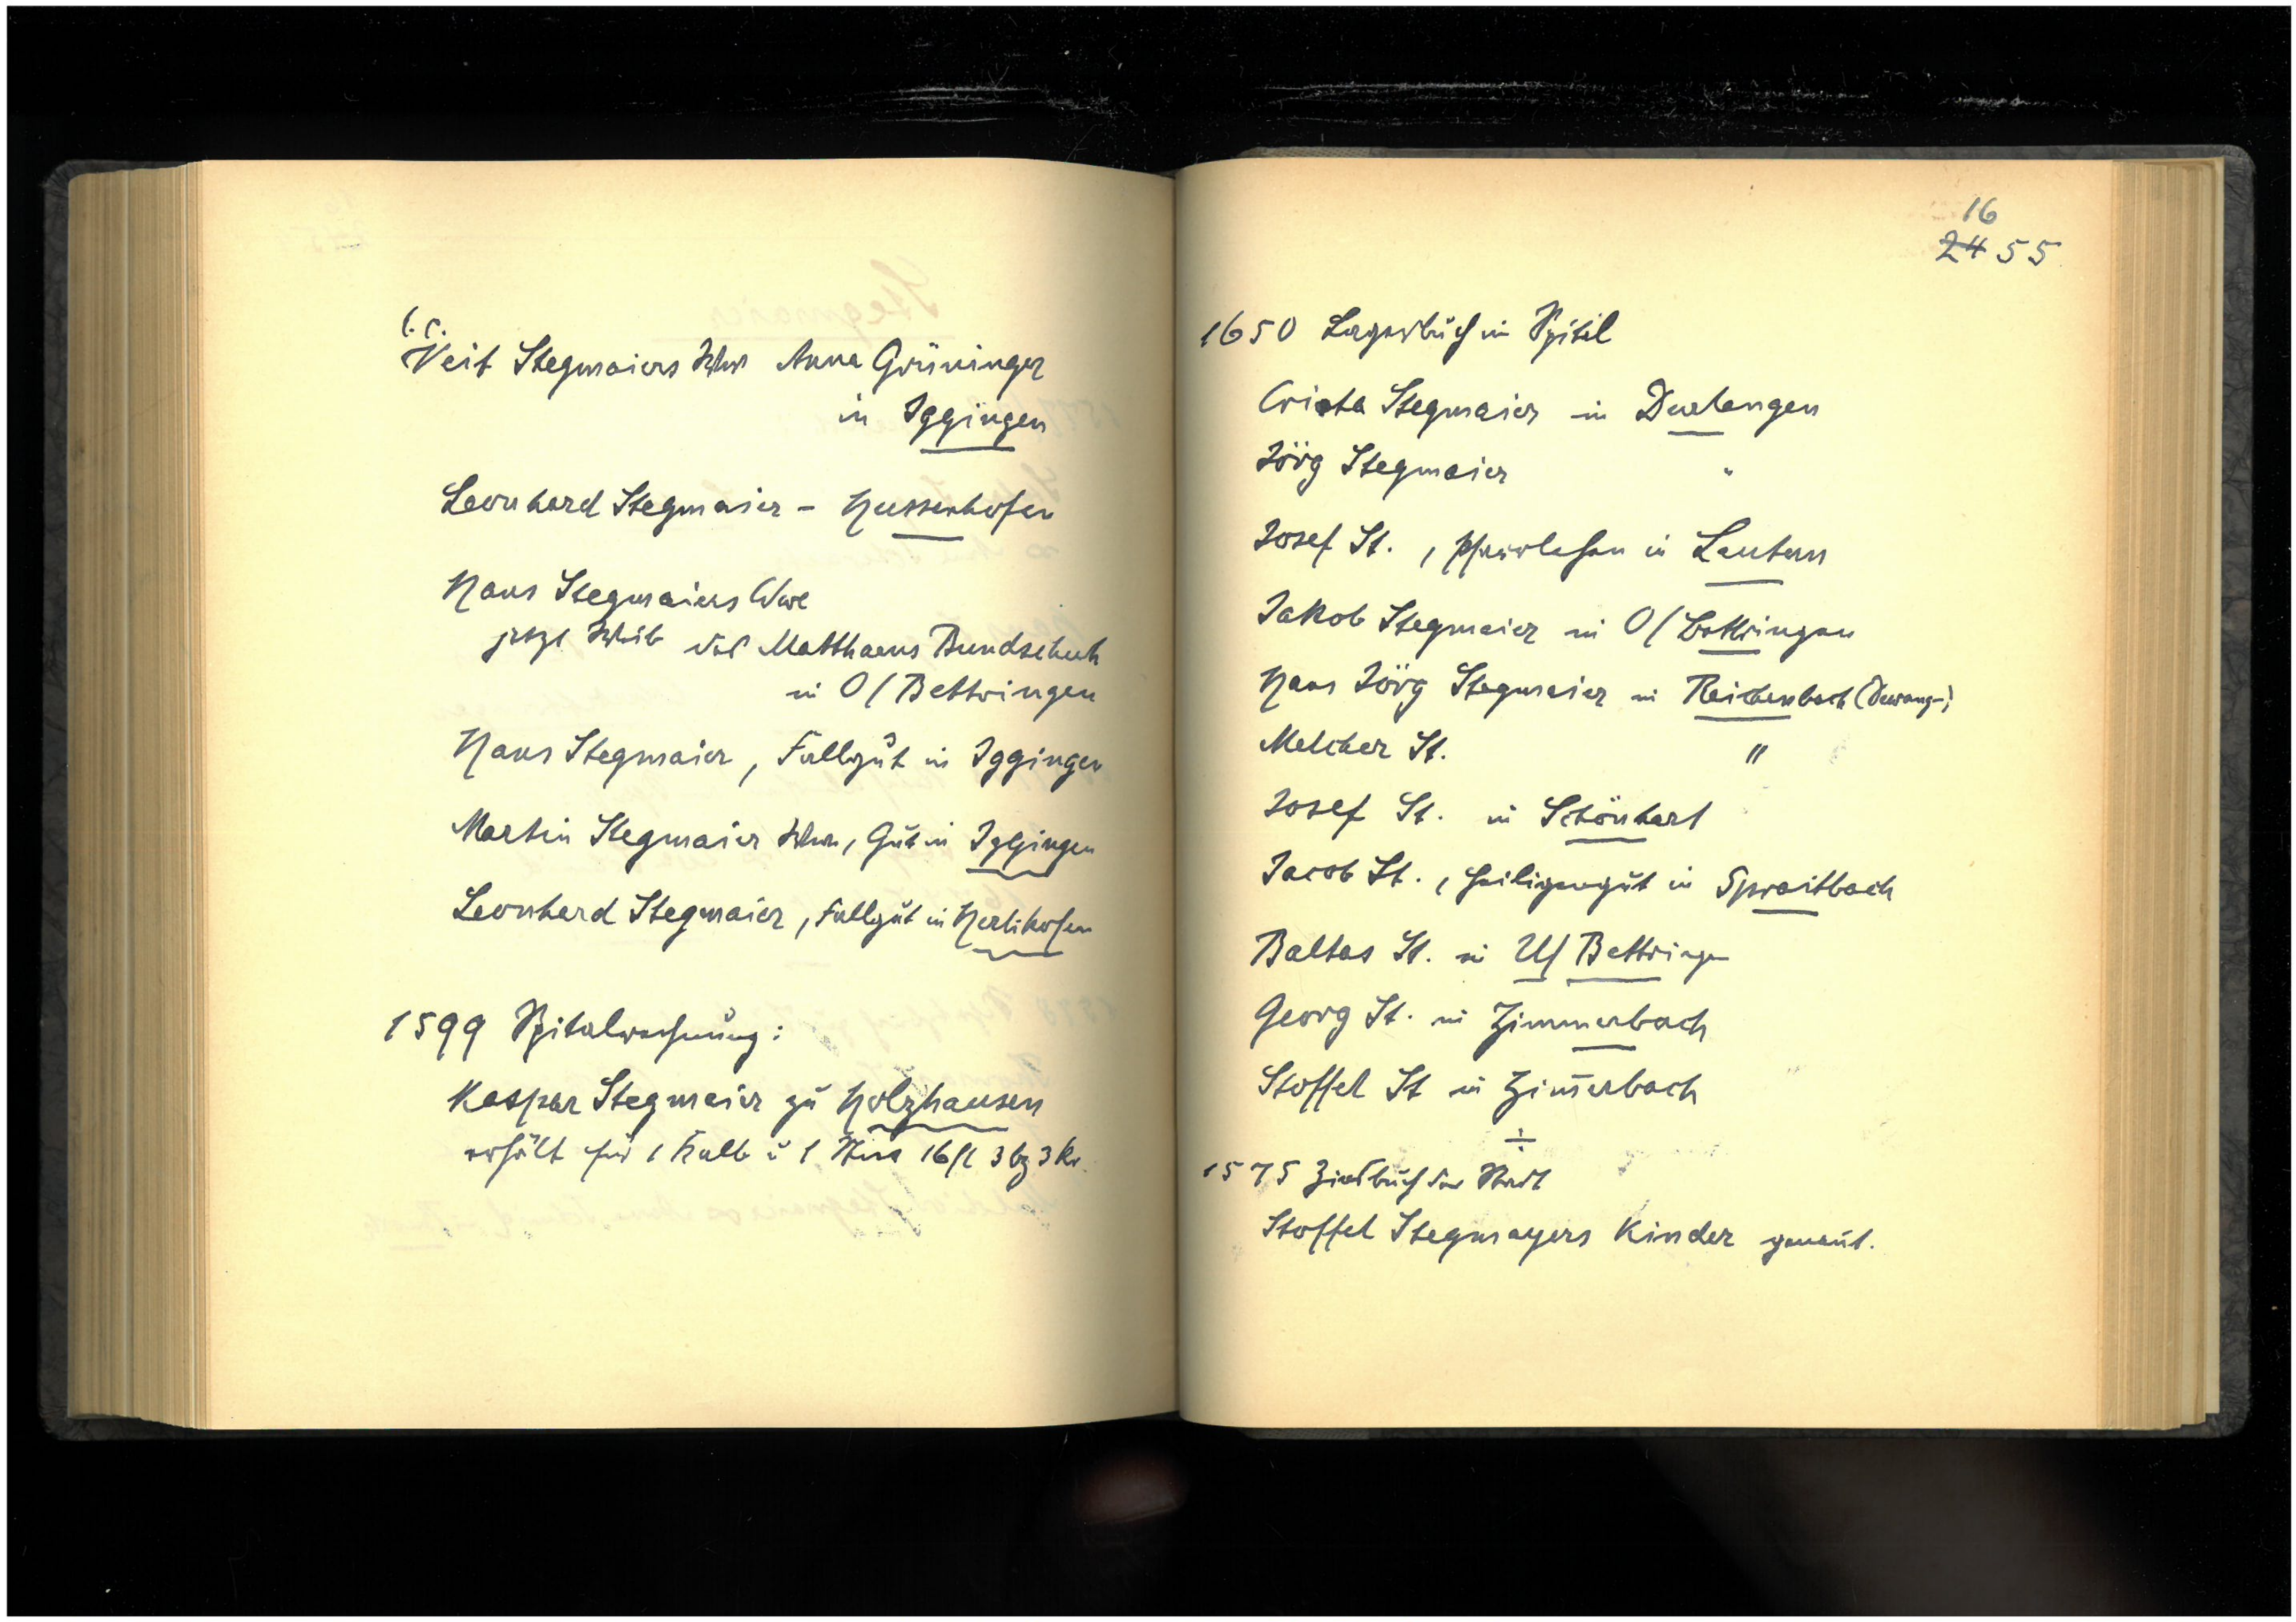 l. c.
Veit Stegmaiers Wwe Anna Grüninger
in Iggingen
Leonhard Stegmaier - Hussenhofen
Hans Stegmaiers Wwe
jetzt Weib des Matthaeus Bundschuh
in O/Bettringen
Hans Stegmaier, Fallgut in Iggingen
Martin Stegmaier Wwe, Gut in Iggingen
Leonhard Stegmaier, Fallgut in Herlikofen
1599 Spitalrechnung:
Kaspar Stegmaier zu Holzhausen
erhält für 1 Kalb u 1 16 fl 3 bz 3 Kr.
16
24 55
1650 Lagerbuch im Spital
Crista Stegmaier in Durlangen
Jörg Stegmaier "
Josef St., Pfarrlehen in Lautern
Jakob Stegmaier in O/Bettringen
Hans Jörg Stegmaier in Reichenbach (Dewang-)
Melcher St. "
Josef St. in Schönhart
Jacob St., Heiligengut in Spraitbach
Baltas St. in U/Bettringen
Georg St. in Zimmerbach
Stoffel St in Zim̄erbach
÷
1575 Zinsbuch der Stadt
Stoffel Stegmayers Kinder genannt.